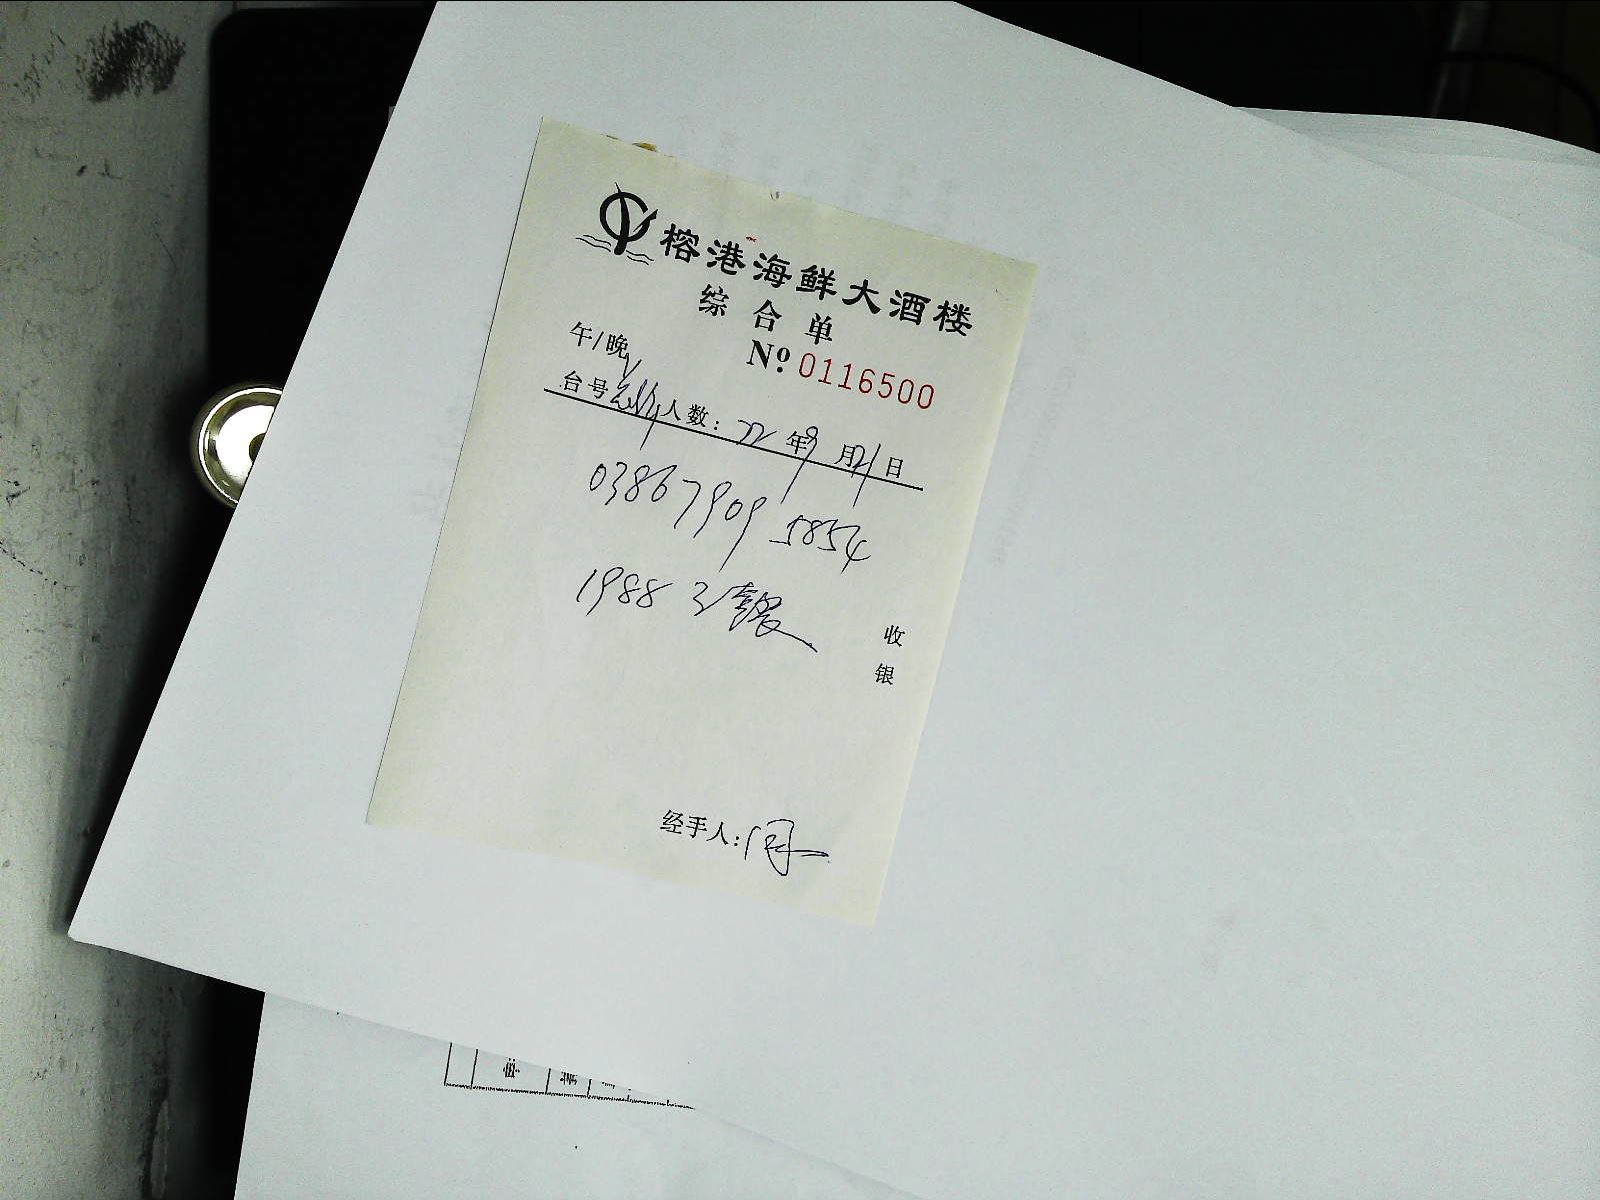 榕港海鲜大酒楼
综合单
午/晚√
No. 0116500
台号 人数: 22 年9月21日
03867909 5854
1988
收银
经手人: